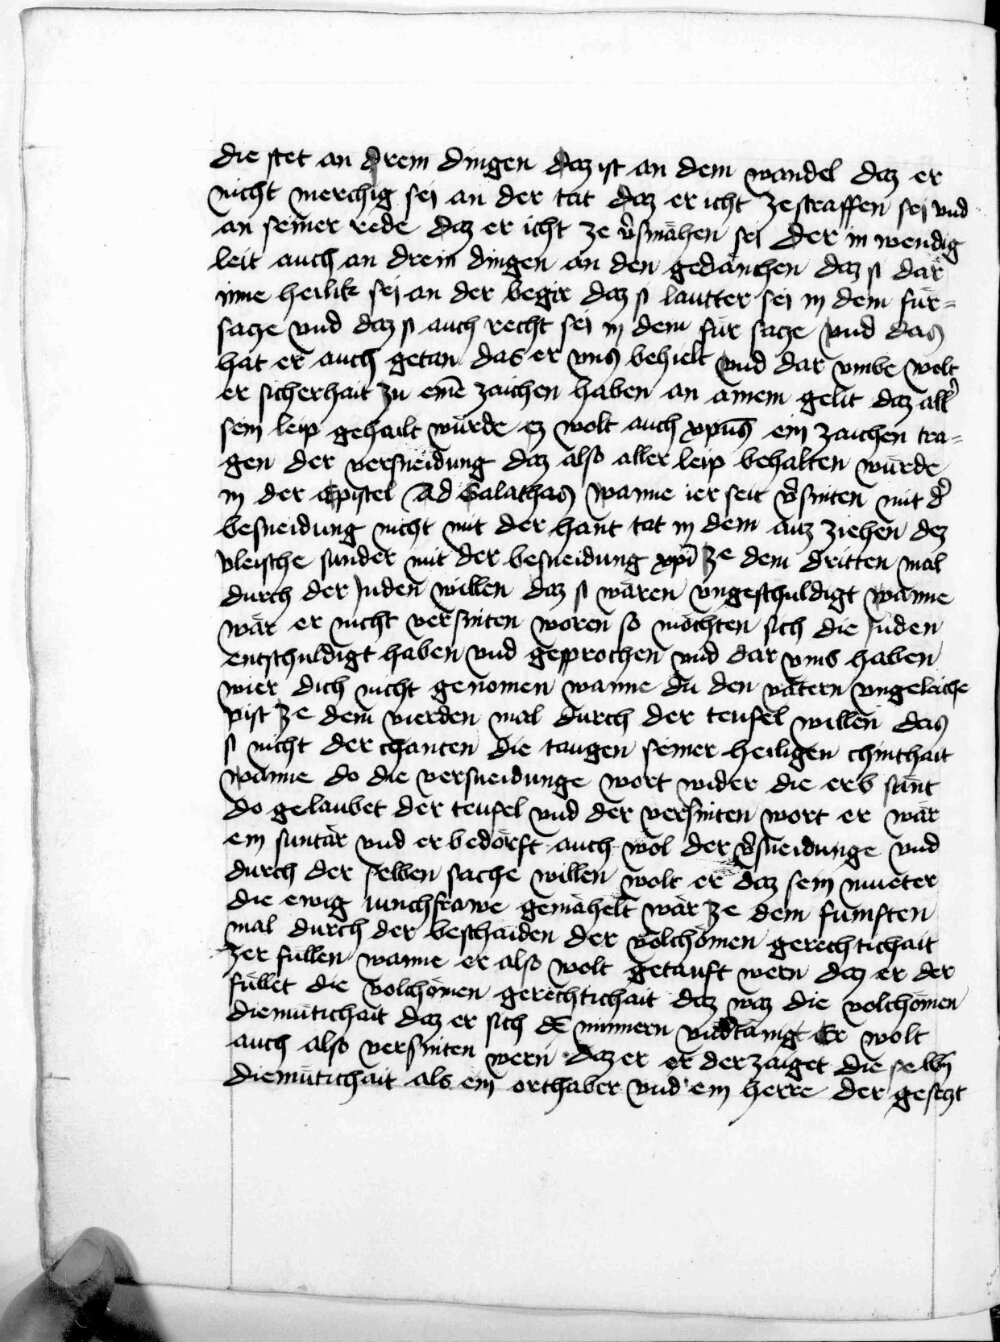 die stet an drein dingen daz ist an dem wandel daz er
nicht merchig sei an der tat daz er icht ze straffen sei vnd
an seiner rede daz er icht ze v̓smähen sei Der in wendig
leit auch an drein dingen an den gedänchen daz si dar
inne heilik sei an der begir daz si lautter sei in dem für-
sacze vnd daz si auch recht sei in dem für sacze vnd das
hat er auch getan das er vns behielt vnd dar vmbe wolt
er sicherhait zu eine̅ zaichen haben an ainem gelit daz all̓
sein leip gehailt würde ez wolt auch xpu̅s ein zaichen tra-
gen der versneidung daz also aller leip behalten würde
in der Epistel Ad Galathas wanne ier seit v̓sniten mit d̓
besneidung nicht mit der hant tat in dem auz ziehen dez
vleische sunder mit der besneidung xp̅i ze dem dritten mal
durch der Juden willen daz si wären vngeschuldigt wanne
wär er nicht versniten woren so möchten sich die Juden
entschuldigt haben vnd gesprochen vnd dar vmb haben
wier dich nicht genomen wanne du den vätern vngeleiche
pist ze dem vierden mal durch der teufel willen das
si nicht der chanten die taugen seiner heiligen chinthait
wanne do die versneidunge wort wider die erb sünt
do gelaubet der teufel vnd der versniten wort er wär
ein suntär vnd er bedörft auch wol der v̓sneidunge vnd
durch der selben sache willen wolt er daz sein mueter
die ewig iunchfrawe gemähelt wär ze dem fumften
mal durch der beschaiden der volchömen gerechtichait
zer füllen wanne er also wolt getauft wern daz er der
füllet die volchömen gerechtichait daz waz die volchömen
diemütichait daz er sich de̅ minnern vnd̓tänigt Er wolt
auch also versniten wern daz er er der zaiget die selb̅
diemütichait als ein orthaber vnd ein herre der geseczt